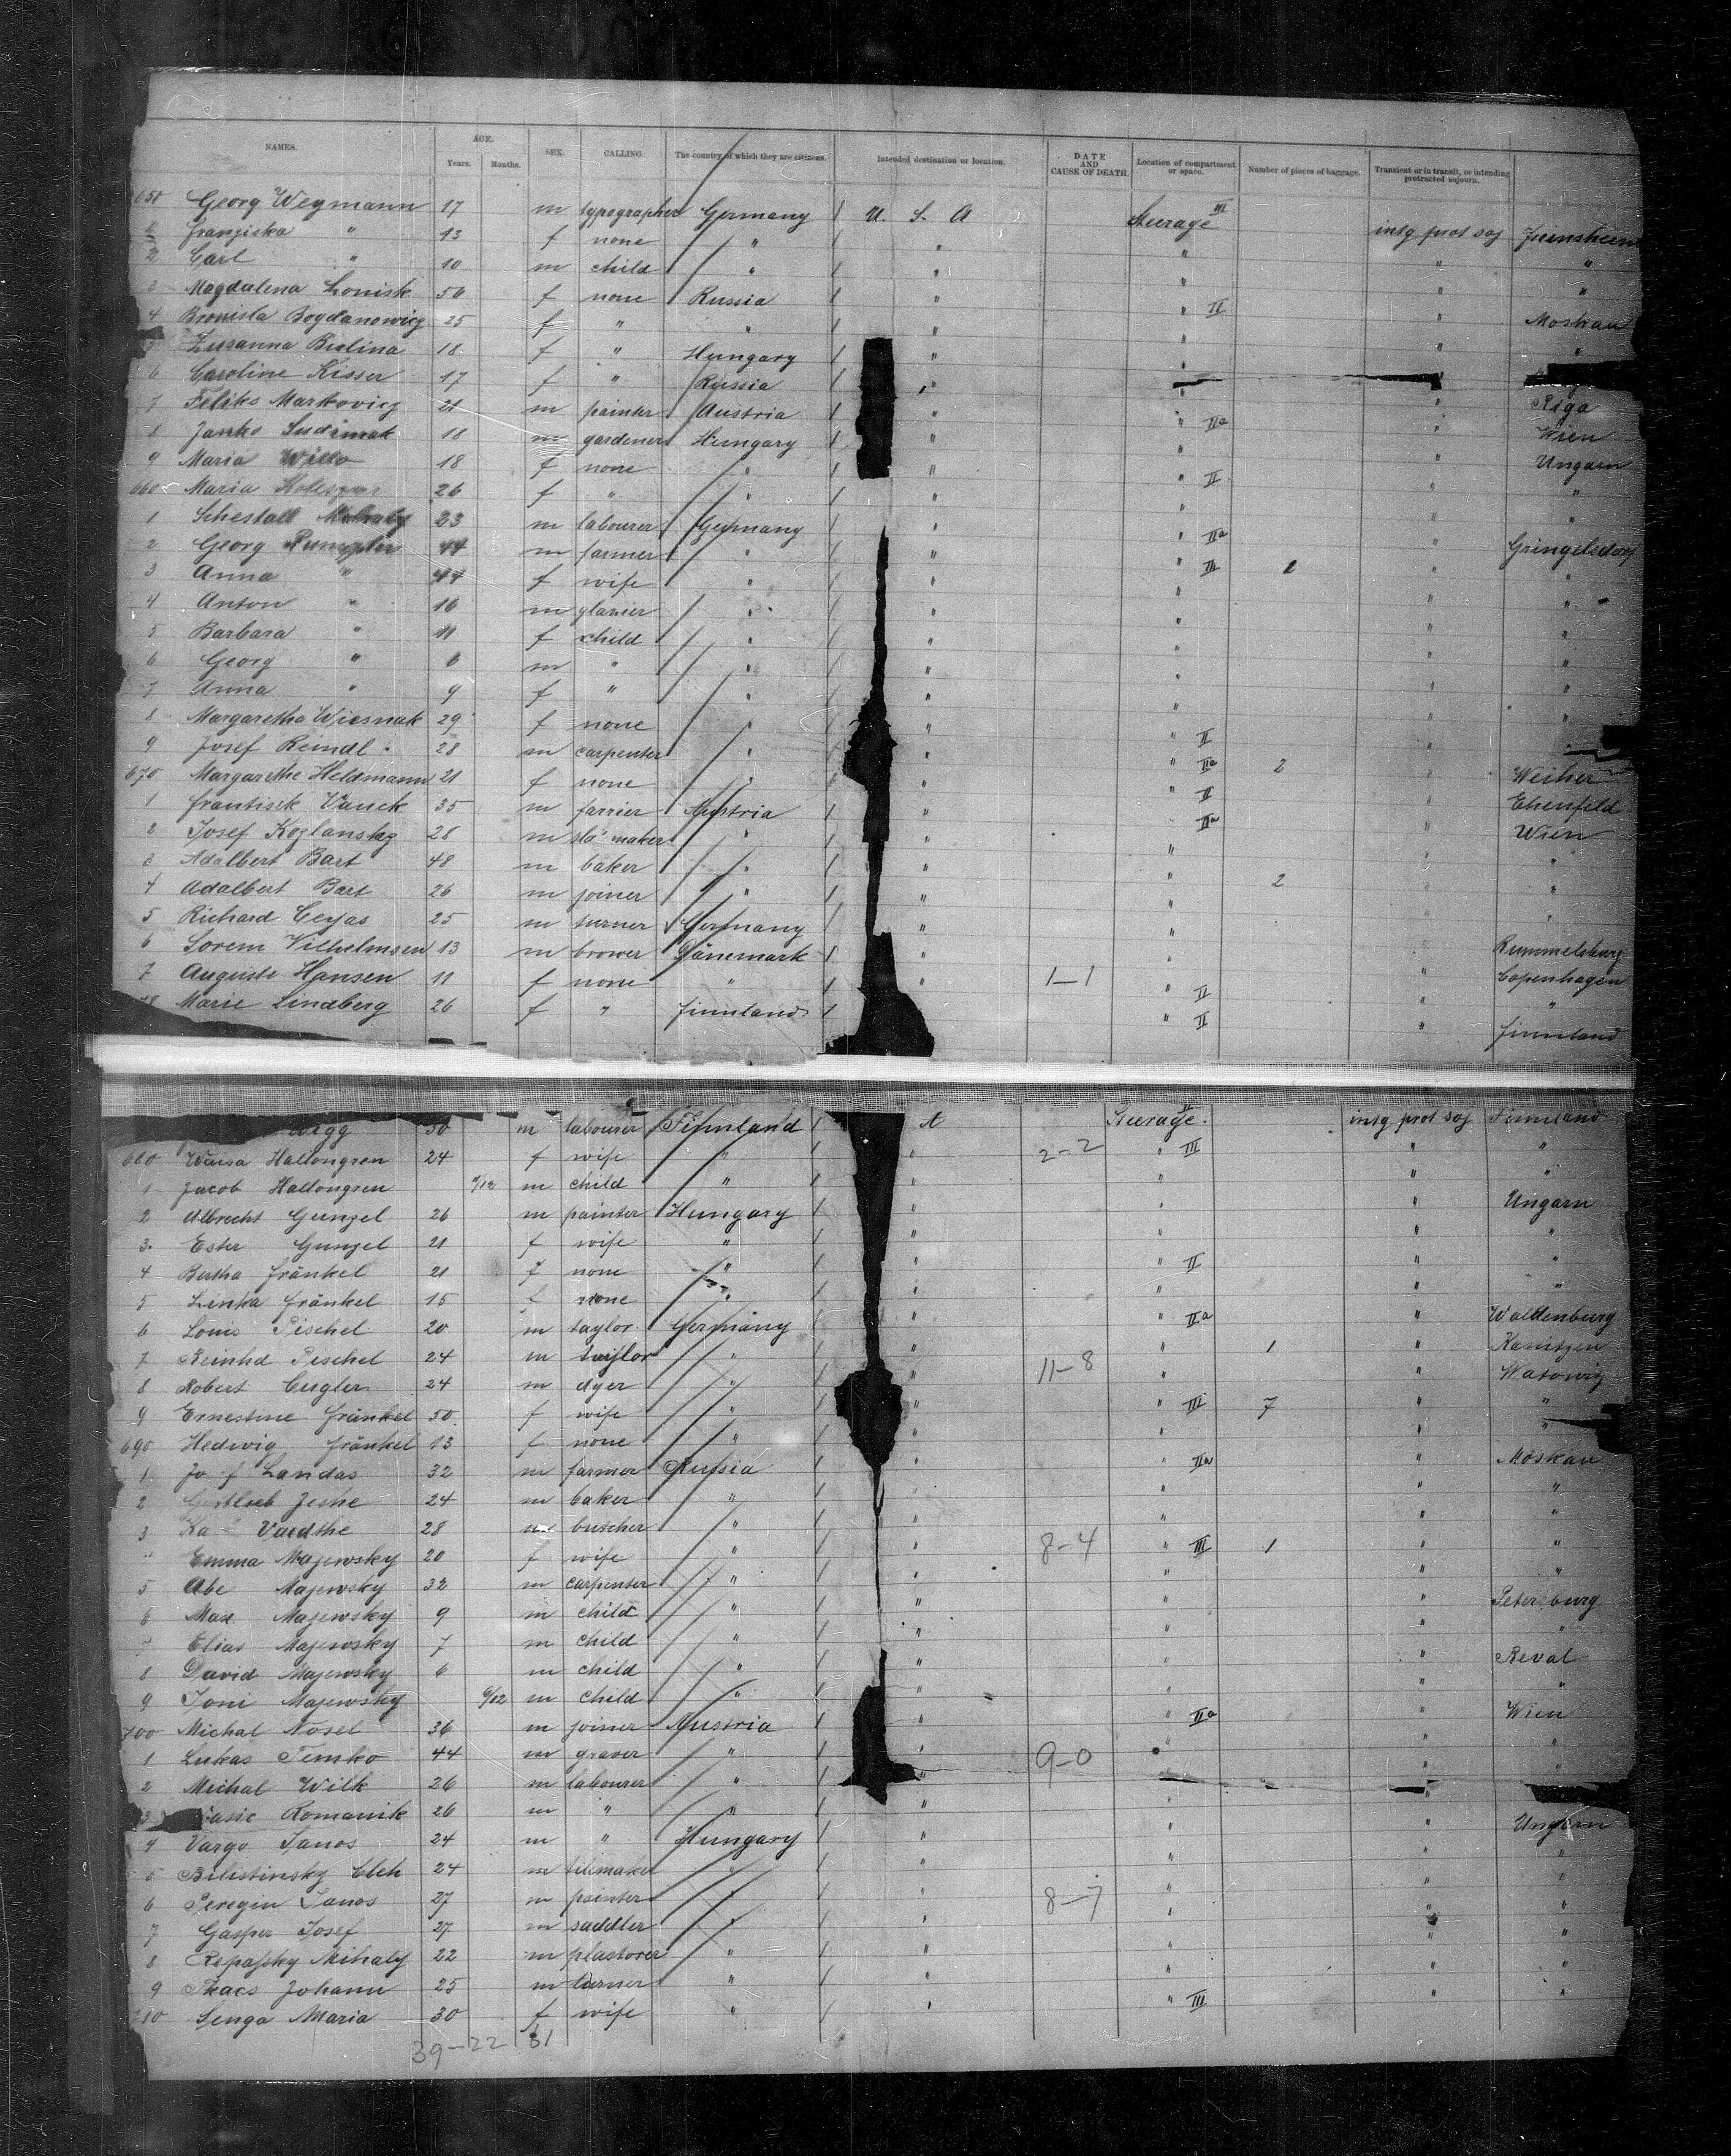 NAMES. AGE. SEX. CALLING. The country of which they are citizens. Intended destination or location. DATE AND CAUSE OF DEATH. Location of compartment or space. Number of pieces of baggage. Transient or in transit, or intending protracted sojourn.
Years. Months.
650 Georg Weymann 17 m typographer Germany / U. S. A Steerage III intg prot soj
1 Franziska " 13 f none " / " " " "
2 Carl " 10 m child " / " " " "
3 Magdalena 56 f none Russia / " " II " Moskau
4 Bronisla Bogdanowicz 25 f " " / " " " "
Zusanna Berlina 18 f " Hungary / " "
6 Caroline Kisser 17 f " Russia / " " " Riga
7 Feliks Markovicz 21 m painter Austria / " " IIa " Wien
8 Janko 18 m gardener Hungary / " " " Ungarn
9 Maria 18 f none " / " " II " "
660 Maria 26 f " " / " " " "
1 23 m labourer Germany / " " IIa " Gringelsdorf
2 Georg Rumpler 44 m farmer " / " " III 1 " "
3 Anna " 44 f wife " / " " " "
4 Anton " 16 m glazier " / " " " "
5 Barbara " 11 f child " / " " " "
6 Georg " 6 m " " / " " " "
7 Anna " 9 f " " / " " " "
8 Margaretha Wiesnak 29 f none " / " " II " "
9 Josef Reindl 28 m carpenter " / " " IIa 2 " Weiher
670 Margarethe Heldmann 21 f none " / " " II " Ehenfeld
1 Frantisek Vanek 35 m farrier Austria / " " IIa " Wien
2 Josef Kozlansky 28 m maker " / " " " "
3 Adalbert Bart 48 m baker " / " " 2 " "
4 Adalbert Bart 26 m joiner " / " " " "
5 Richard Cerjas 25 m turner Germany / " " Rummelsburg
6 Sorem Vilhelmsen 13 m brower Dänemark / " " Copenhagen
7 Auguste Hansen 11 f none " / " 1-1 " II " "
Marie Lindberg 26 f " Finnland / " II " Finnland
30 m labourer Finnland / A Steerage II intg prot soj Finnland
680 Waisa Hallongren 24 f wife " / " 2-2 " III " "
1 Jacob Hallongren /12 m child " / " " " "
2 Albrecht Günzel 26 m painter Hungary / " " " Ungarn
3 Ester Gunzel 21 f wife " / " " " "
4 Bertha Fränkel 21 f none " / " " II " "
5 Linka Fränkel 15 f none " / " " " "
6 Louis Pischel 20 m taylor Germany / " " IIa " Waldenburg
7 Reinhd Peschel 24 m taylor " / " 11-8 " 1 " Kanitzen
8 Robert Cugler 24 m dyer " / " " " Watowig
9 Ernestine Fränkel 50 f wife " / " " III 7 " "
690 Hedwig Fränkel 13 f none " / " " " "
1 Landas 32 m farmer Russia / " " IIa " Moskau
2 Gottlieb Jeshe 24 m baker " / " " " "
3 Ka Vaedthe 28 m butcher " / " " " "
Emma Majewsky 20 f wife " / " 8-4 " III 1 " "
5 Abe Majewsky 32 m carpenter " / " " " "
6 Max Majewsky 9 m child " / " " " Petersburg
7 Elias Majewsky 7 m child " / " " " "
8 David Majewsky 6 m child " / " " " Reval
9 Toni Majewsky 6/12 m child " / " " " "
700 Michal Nosel 36 m joiner Austria / " " IIa " Wien
1 Lukas Temko 44 m graver " / " 9-0 " " "
2 Michal Wilk 26 m labourer " / " " "
3 Romanik 26 m " " / " "
4 Vargo Janos 24 m " Hungary / " " " Ungarn
5 Bilistinsky 24 m tilemaker " / " " " "
6 Peregin Janos 27 m painter " / 8-7 " " "
7 Gasper Josef 27 m saddler " / " " " "
8 Repaſsky Mihaly 22 m plastorer " / " " " "
9 Tkacs Johann 25 m turner " / " " " "
710 Senga Maria 30 f wife " / " " III " "
39-22 61